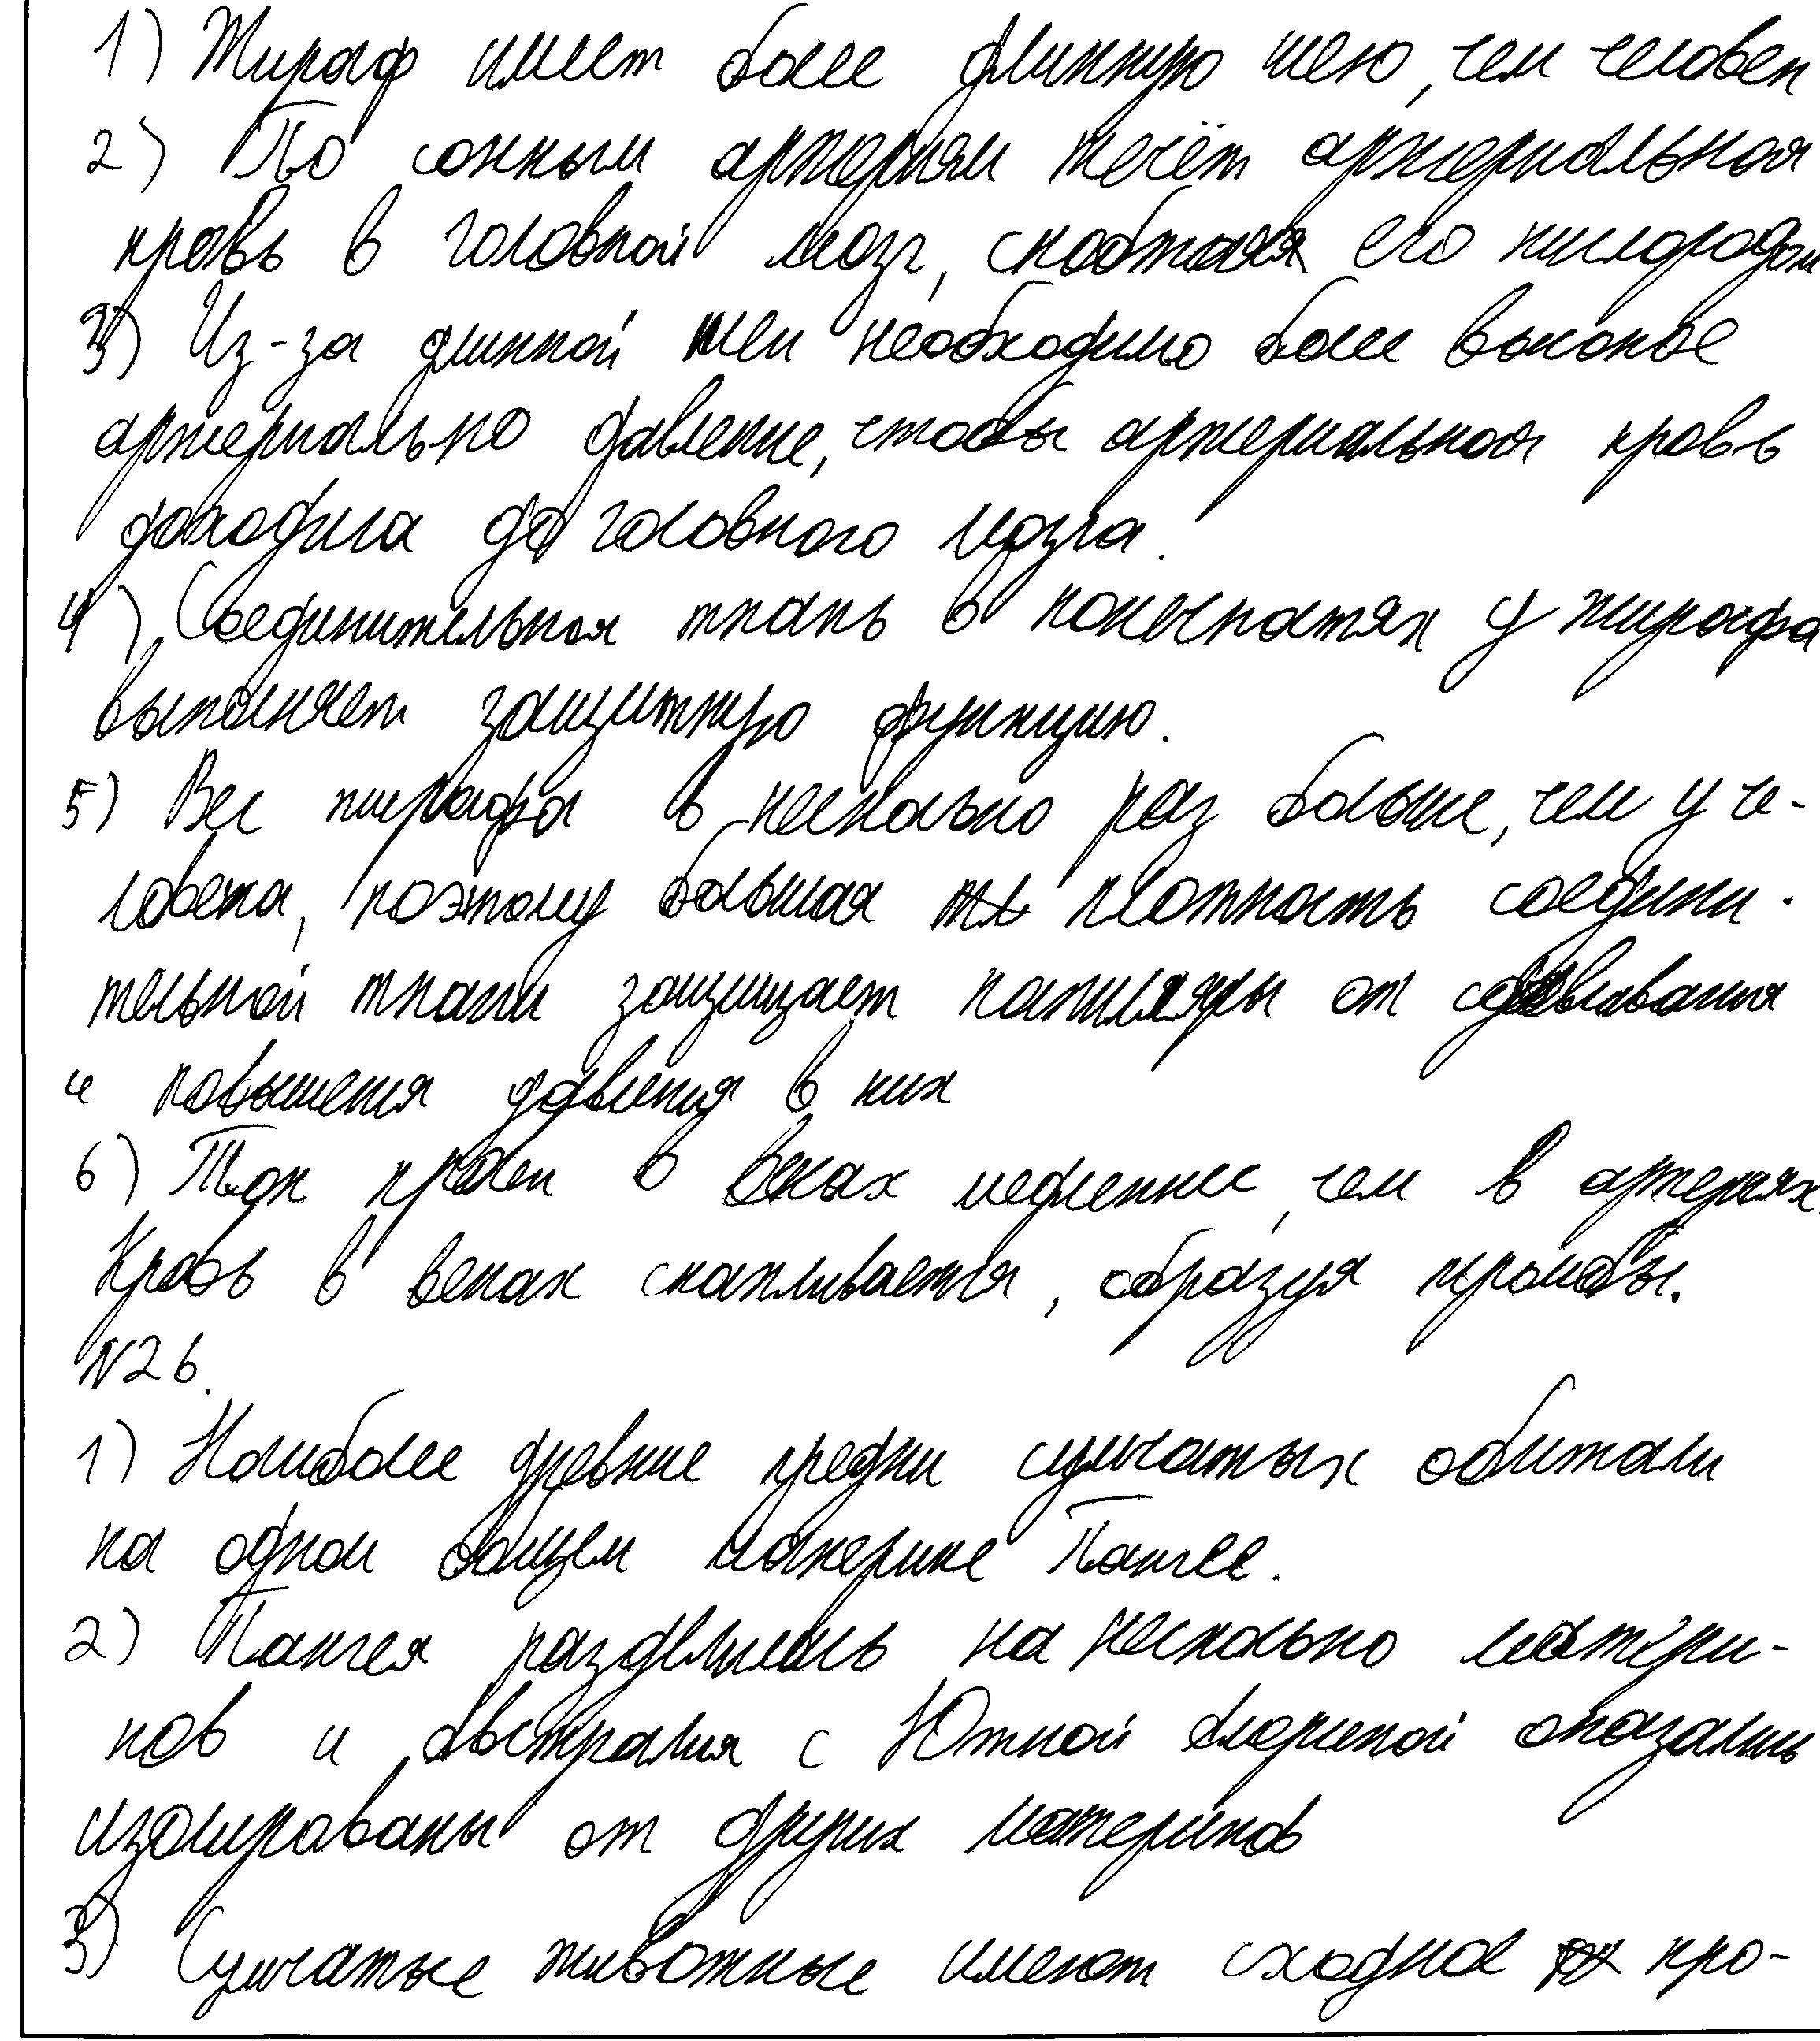 1) Жираф имеет более длинную шею, чем человек
2) По сонным артериям течёт артериальная
кровь в головной мозг, снабжая его кислородом
3) Из-за длинной шеи необходимо более высокое
артериально давление, чтобы артериальная кровь
доходила до головного мозга.
4) Соединительная ткань в конечнатях у жирафа
выполняет защитную функцию.
5) Вес жирафа в несколько раз больше, чем у че-
ловека, поэтому большая плотность соедини-
тельной ткани защищает капилляры от сдавливания
и повышения давления в них
6) Ток крови в венах медленнее, чем в артериях.
Кровь в венах скапливается, образуя тромбы.
N26.
1) Наиболее древние предки сумчатых обитали
на одном общем материке Пангее.
2) Пангея разделилась на несколько матери-
ков и Австралия с Южной Америкой оказались
изолированы от других материков
3) Сумчатые животные имеют сходное про-